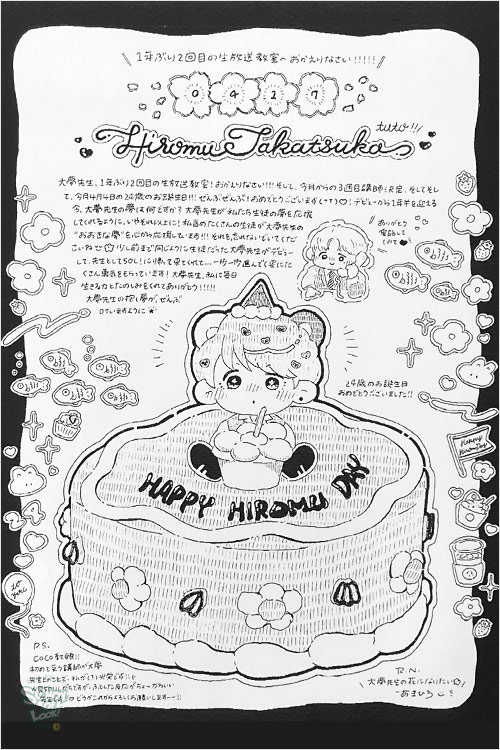 1年ぶり2回目の生放送教室へおかえりなさい!!!!!
0417
Hiromu Takatsuka tuto!!!
大夢先生、1年ぶり2回目の生放送教室!おかえりなさい!!! そして、今月からの3週目講師決定、そしてそし
て、今月4月4日の24歳のお誕生日!! ぜんぶぜんぶ!おめでとうございます(>▽<)♡! デビューから1年を迎える
今、大夢先生の夢は何ですか? 大夢先生が私たち生徒の夢を応援
してくれるように、いやそれ以上に!私含めたくさんの生徒が大夢先生の
"おおきな夢"を心から応援しています!!! それを忘れないでいてくだ
さいねせ 少し前まで同じように生徒だった大夢先生がデビュー
して、先生としてSOL!に帰って来てくれて…一歩一歩進んでく姿にた
くさん勇気をもらっています!大夢先生、私に毎日
生きる力とたのしみをくれてありがとう!!!!!
大夢先生の抱く夢が、ぜんぶ
叶いますように
ありがとう
電話して
くれて
24歳のお誕生日
おめでとうございました!!
HAPPY HIROMU DAY
Happy
24
P.S.
COCO教師!!
初めて会う講師が大夢
先生とのことで、私がとても光栄です!!
R.N.
大夢先生の花になりたい
あまひろ